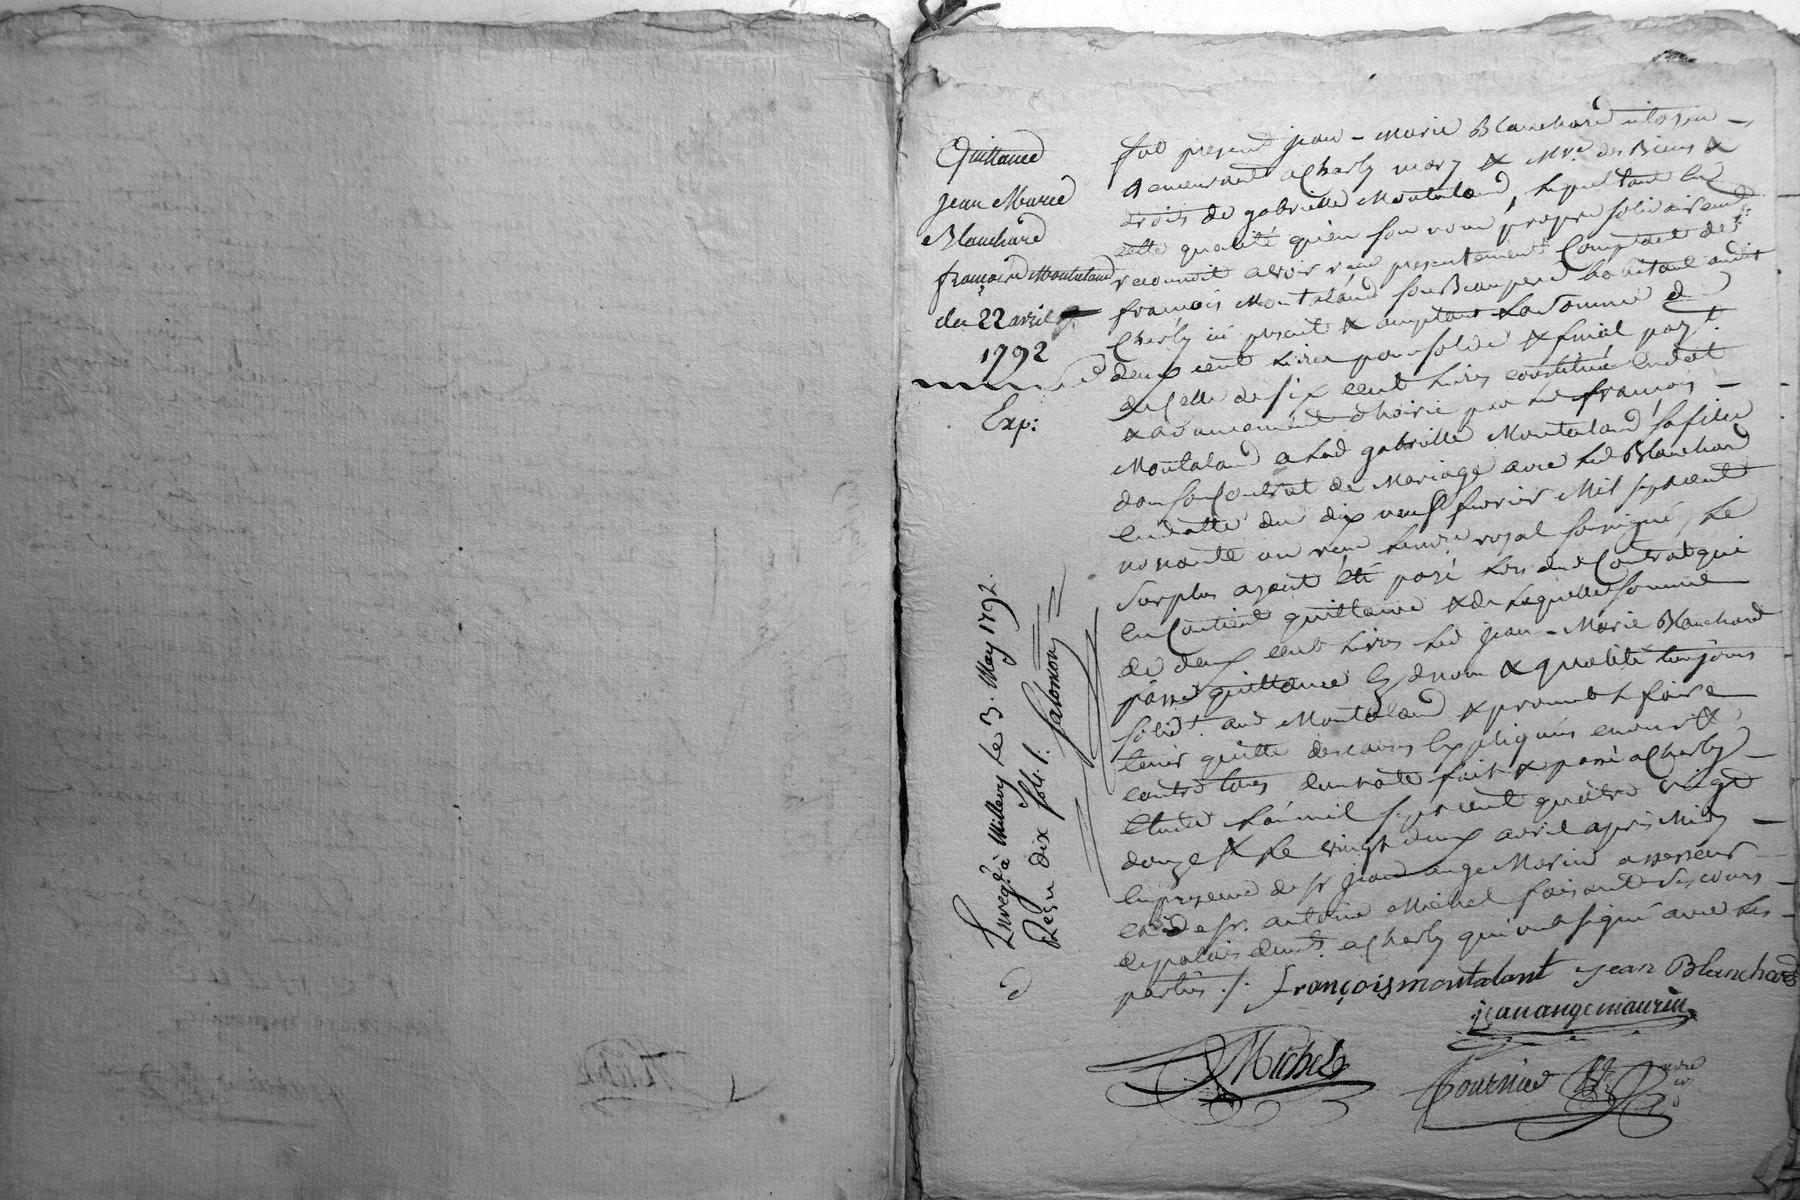 Quittance
jean Marie
Blanchard
françois Montaland
du 22 avril
1792
Exp:
fut present jean - Marie Blanchard citoyen
demeurant a Charly mary & Mre. des Biens &
droits de gabrielle Montaland, lequel tant en
cette qualité qu'en son nom propre solidairemt:
reconnoit avoir reçu presentement Comptant de sr
françois Montaland son Beaupere habitant audit
Charly ici present & acceptant la somme de
deux cent livres pour solde & final payt.
de celle de six cent livres constituée en dot
& avancement d'hoirie par led françois
Montaland a lad gabrielle Montaland sa fille
dans son Contrat de Mariage avec led Blanchard
en datte du dix neuf fevrier Mil sept cent
nonante un reçu le nore royal soussigné, le
surplus ayant été payé lors dud Contrat qui
en Contient quittance & de laquelle somme
de deux cent livres led jean - Marie Blanchard
passe quittance es d nom & qualité toujours
solidt. aud Montaland & promet le faire
tenir quitte des causes expliquées envers &
contre tous dont acte fait & passé a Charly
etude l'an mil sept cent quatre vingt
douze & le vingt deux avril apres Midy
en presence de sr jean ange Morin assesseur
et de sr. antoine Michel faisant ses cours
de palais demt. a Charly qui ont signé avec les
parties ./. françois montalant jean Blanchard
jean ange maurin
Michel
Fournier
Enregé. à Millery le 3. May 1792.
Reçu dix sols /: Salomon